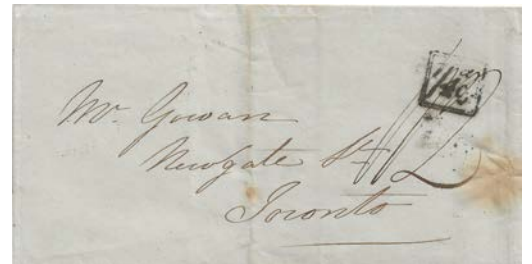 Mr. Gowan
Newgate St.
Toronto